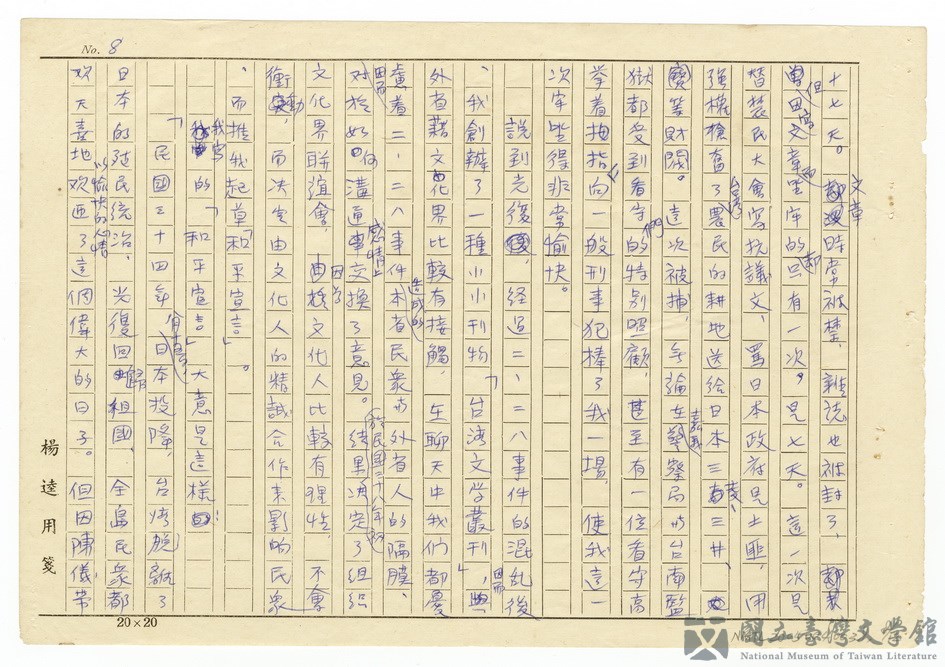 No. 8
十七天。文章時常被禁,雜誌也被封了,
但寫文章而坐牢的卻只有一次。是七天。這一次是
替農民大會寫抗議文,罵日本政府是土匪,用
強權搶奪了台灣農民的耕地送給日本三菱、三井、
等財閥。這次被捕,無論在嘉義警察局或台南監
獄都受到看守們的特別照顧,甚至有一位看守高
舉着拇指向一般刑事犯捧了我一場,使我這一
次牢坐得非常愉快。
說到光復後,經過二、二八事件的混亂後
、我創辦了一種小小刊物「台湾文学叢刊」,因而
外省藉文化界比較有接觸,在聊天中我們都憂
慮着二、二八事件造成的本省民衆或外省人的隔膜,
因而對於如何溝通感情上交換了意見。結果於民國三十八年初決定了組織
文化界聯誼會,因為文化人比較有理性,不會
衝動,而決定由文化人的精誠合作來影响民衆
、而推我起草「和平宣言」。
我寫的「和平宣言」大意是這樣:
「民國三十四年,日本投降,台湾脫離了
日本的殖民統治,光復回歸祖國,全島民衆都
欢天喜地以愉快的心情欢迎了這個偉大的日子。但因陳儀帶
楊逵用箋
20×20
國立臺灣文學館
National Museum of Taiwan Literature